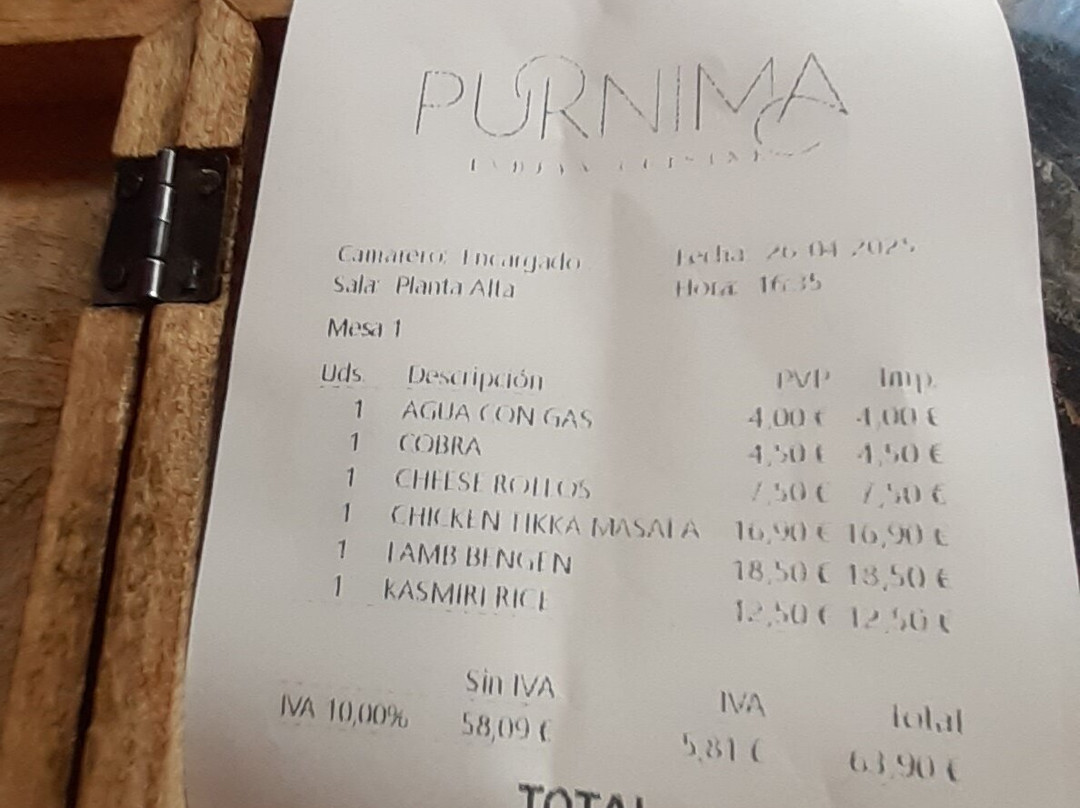 PURNIMA
INDIAN CUISINE
Camarero: Encargado Fecha: 26-04-2025
Sala: Planta Alta Hora: 16:35
Mesa 1
Uds. Descripción PVP Imp.
1 AGUA CON GAS 4,00 € 4,00 €
1 COBRA 4,50 € 4,50 €
1 CHEESE ROLLOS 7,50 € 7,50 €
1 CHICKEN TIKKA MASALA 16,90 € 16,90 €
1 LAMB BENGEN 18,50 € 18,50 €
1 KASMIRI RICE 12,50 € 12,50 €
Sin IVA IVA Total
IVA 10,00% 58,09 € 5,81 € 63,90 €
TOTAL